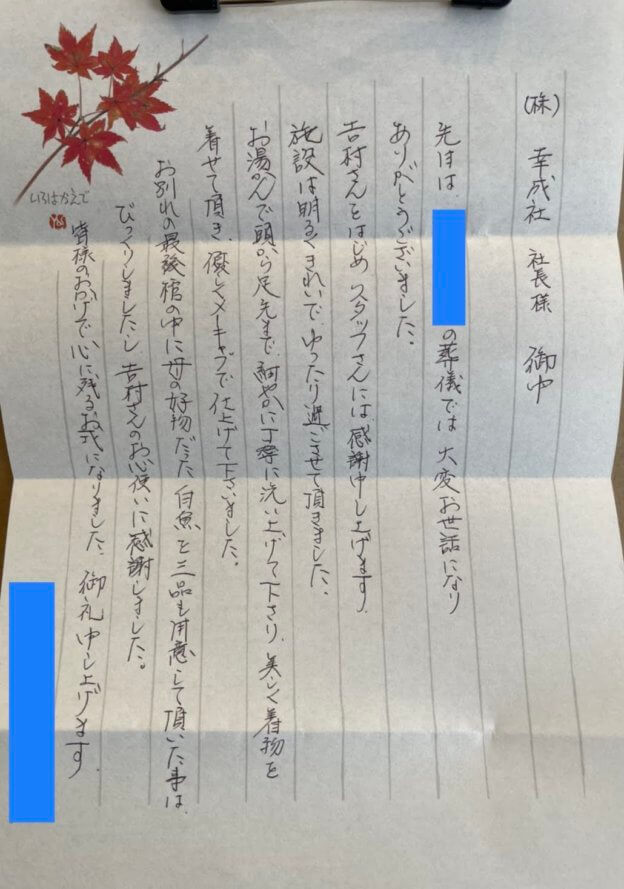 (株) 幸成社 社長様 御中
先日は
の葬儀では 大変お世話になり
ありがとうございました。
吉村さんをはじめ スタッフさんには 感謝申し上げます
施設は明るくきれいで ゆったり過ごさせて頂きました、
お湯かんで頭から足先まで 細やかに丁寧に洗い上げて下さり、美しく着物を
着せて頂き、優しくメーキャップで 仕上げて下さいました。
お別れの最後棺の中に母の好物だった 白魚を三品も用意して頂いた事は
びっくりしましたし 吉村さんのお心使いに感謝しました。
皆様のおかげで 心に残るお式になりました、 御礼申し上げます
いろはかえで